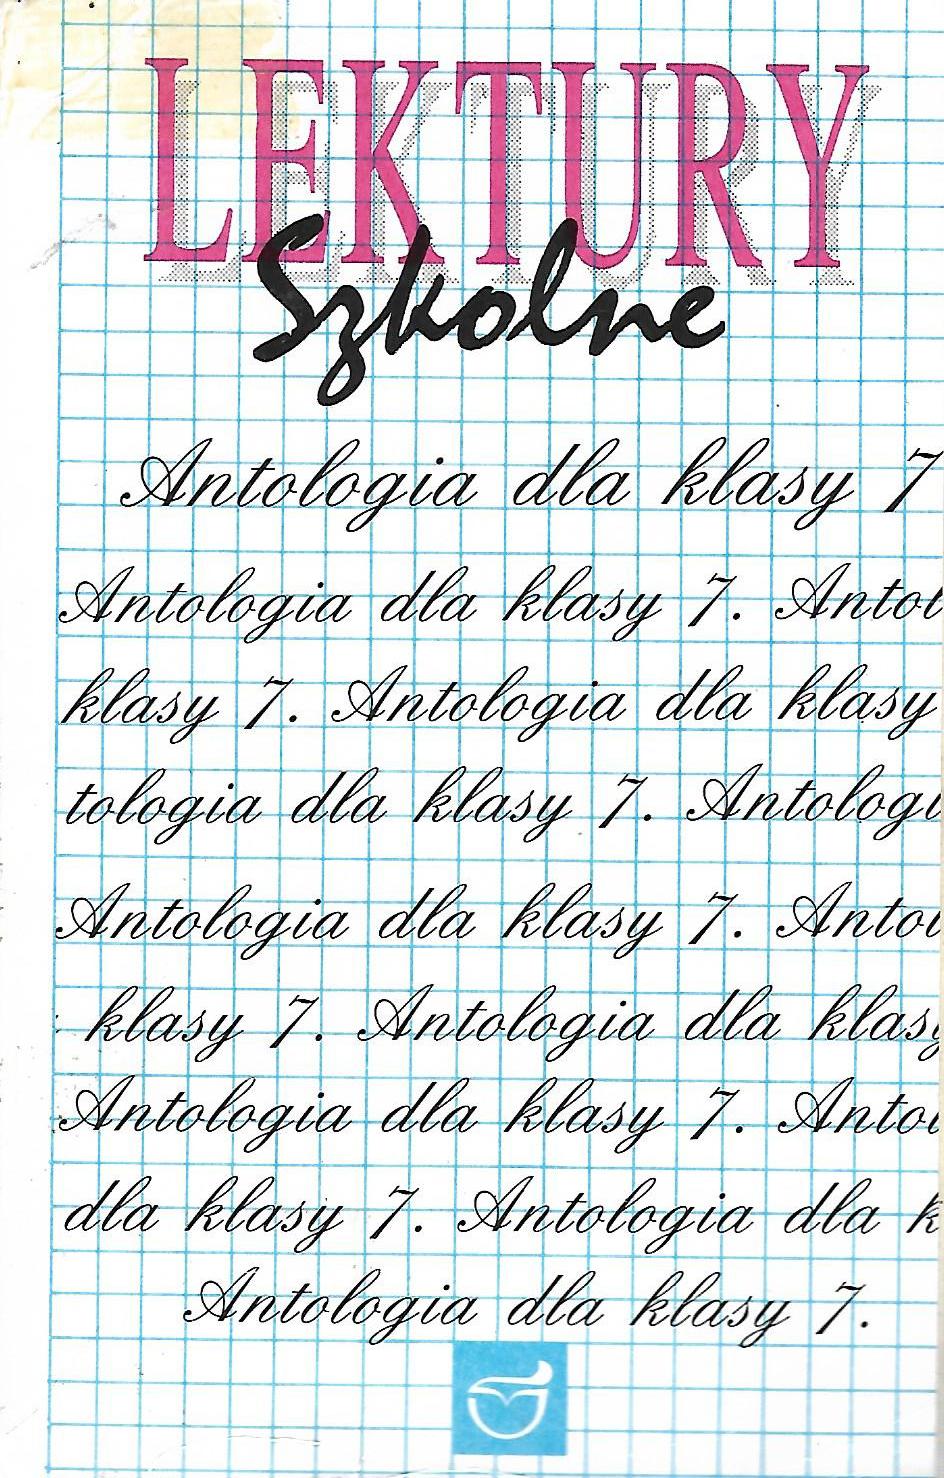 LEKTURY
Szkolne
Antologia dla klasy 7
Antologia dla klasy 7. Antol
klasy 7. Antologia dla klasy
tologia dla klasy 7. Antologi
Antologia dla klasy 7. Antol
klasy 7. Antologia dla klasy
Antologia dla klasy 7. Antol
dla klasy 7. Antologia dla k
Antologia dla klasy 7.